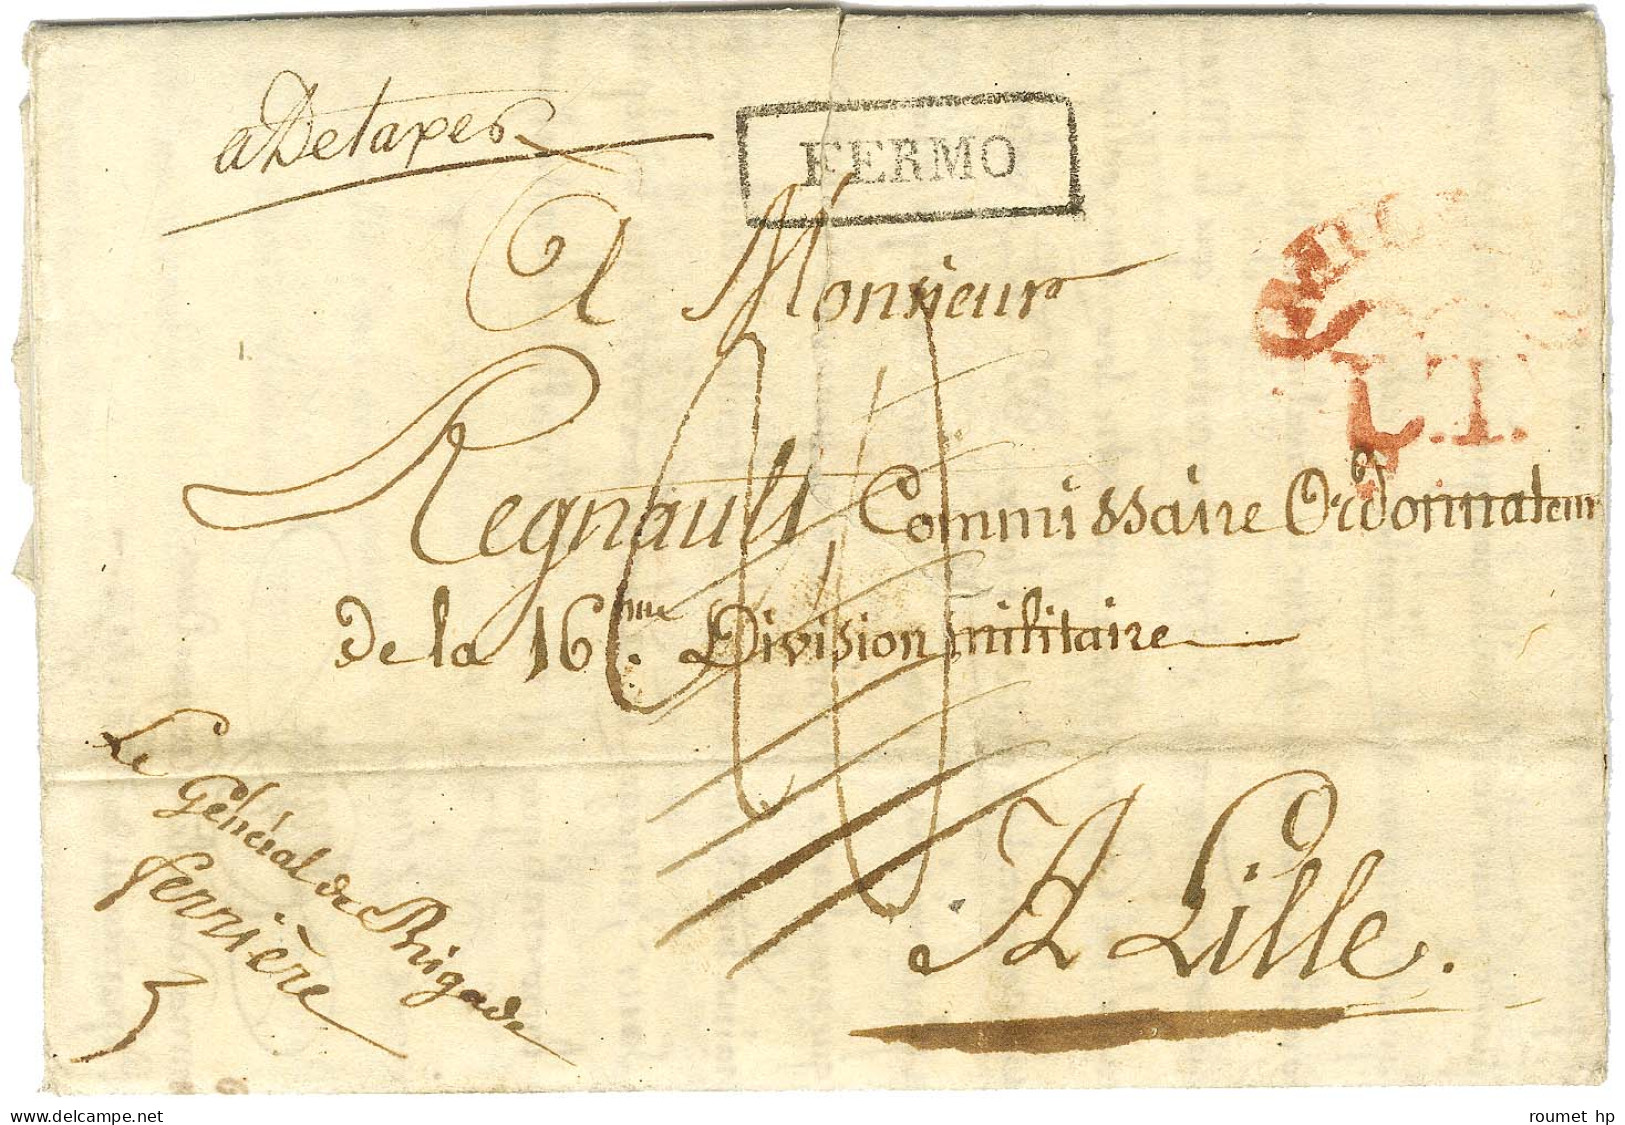 a Detaxer
FERMO
L.T.
A Monsieur
Regnault, Commissaire Ordonnateur
De la 16.me Division militaire
A Lille.
Le Général de Brigade
ferrière
© delcampe.net
roumet hp